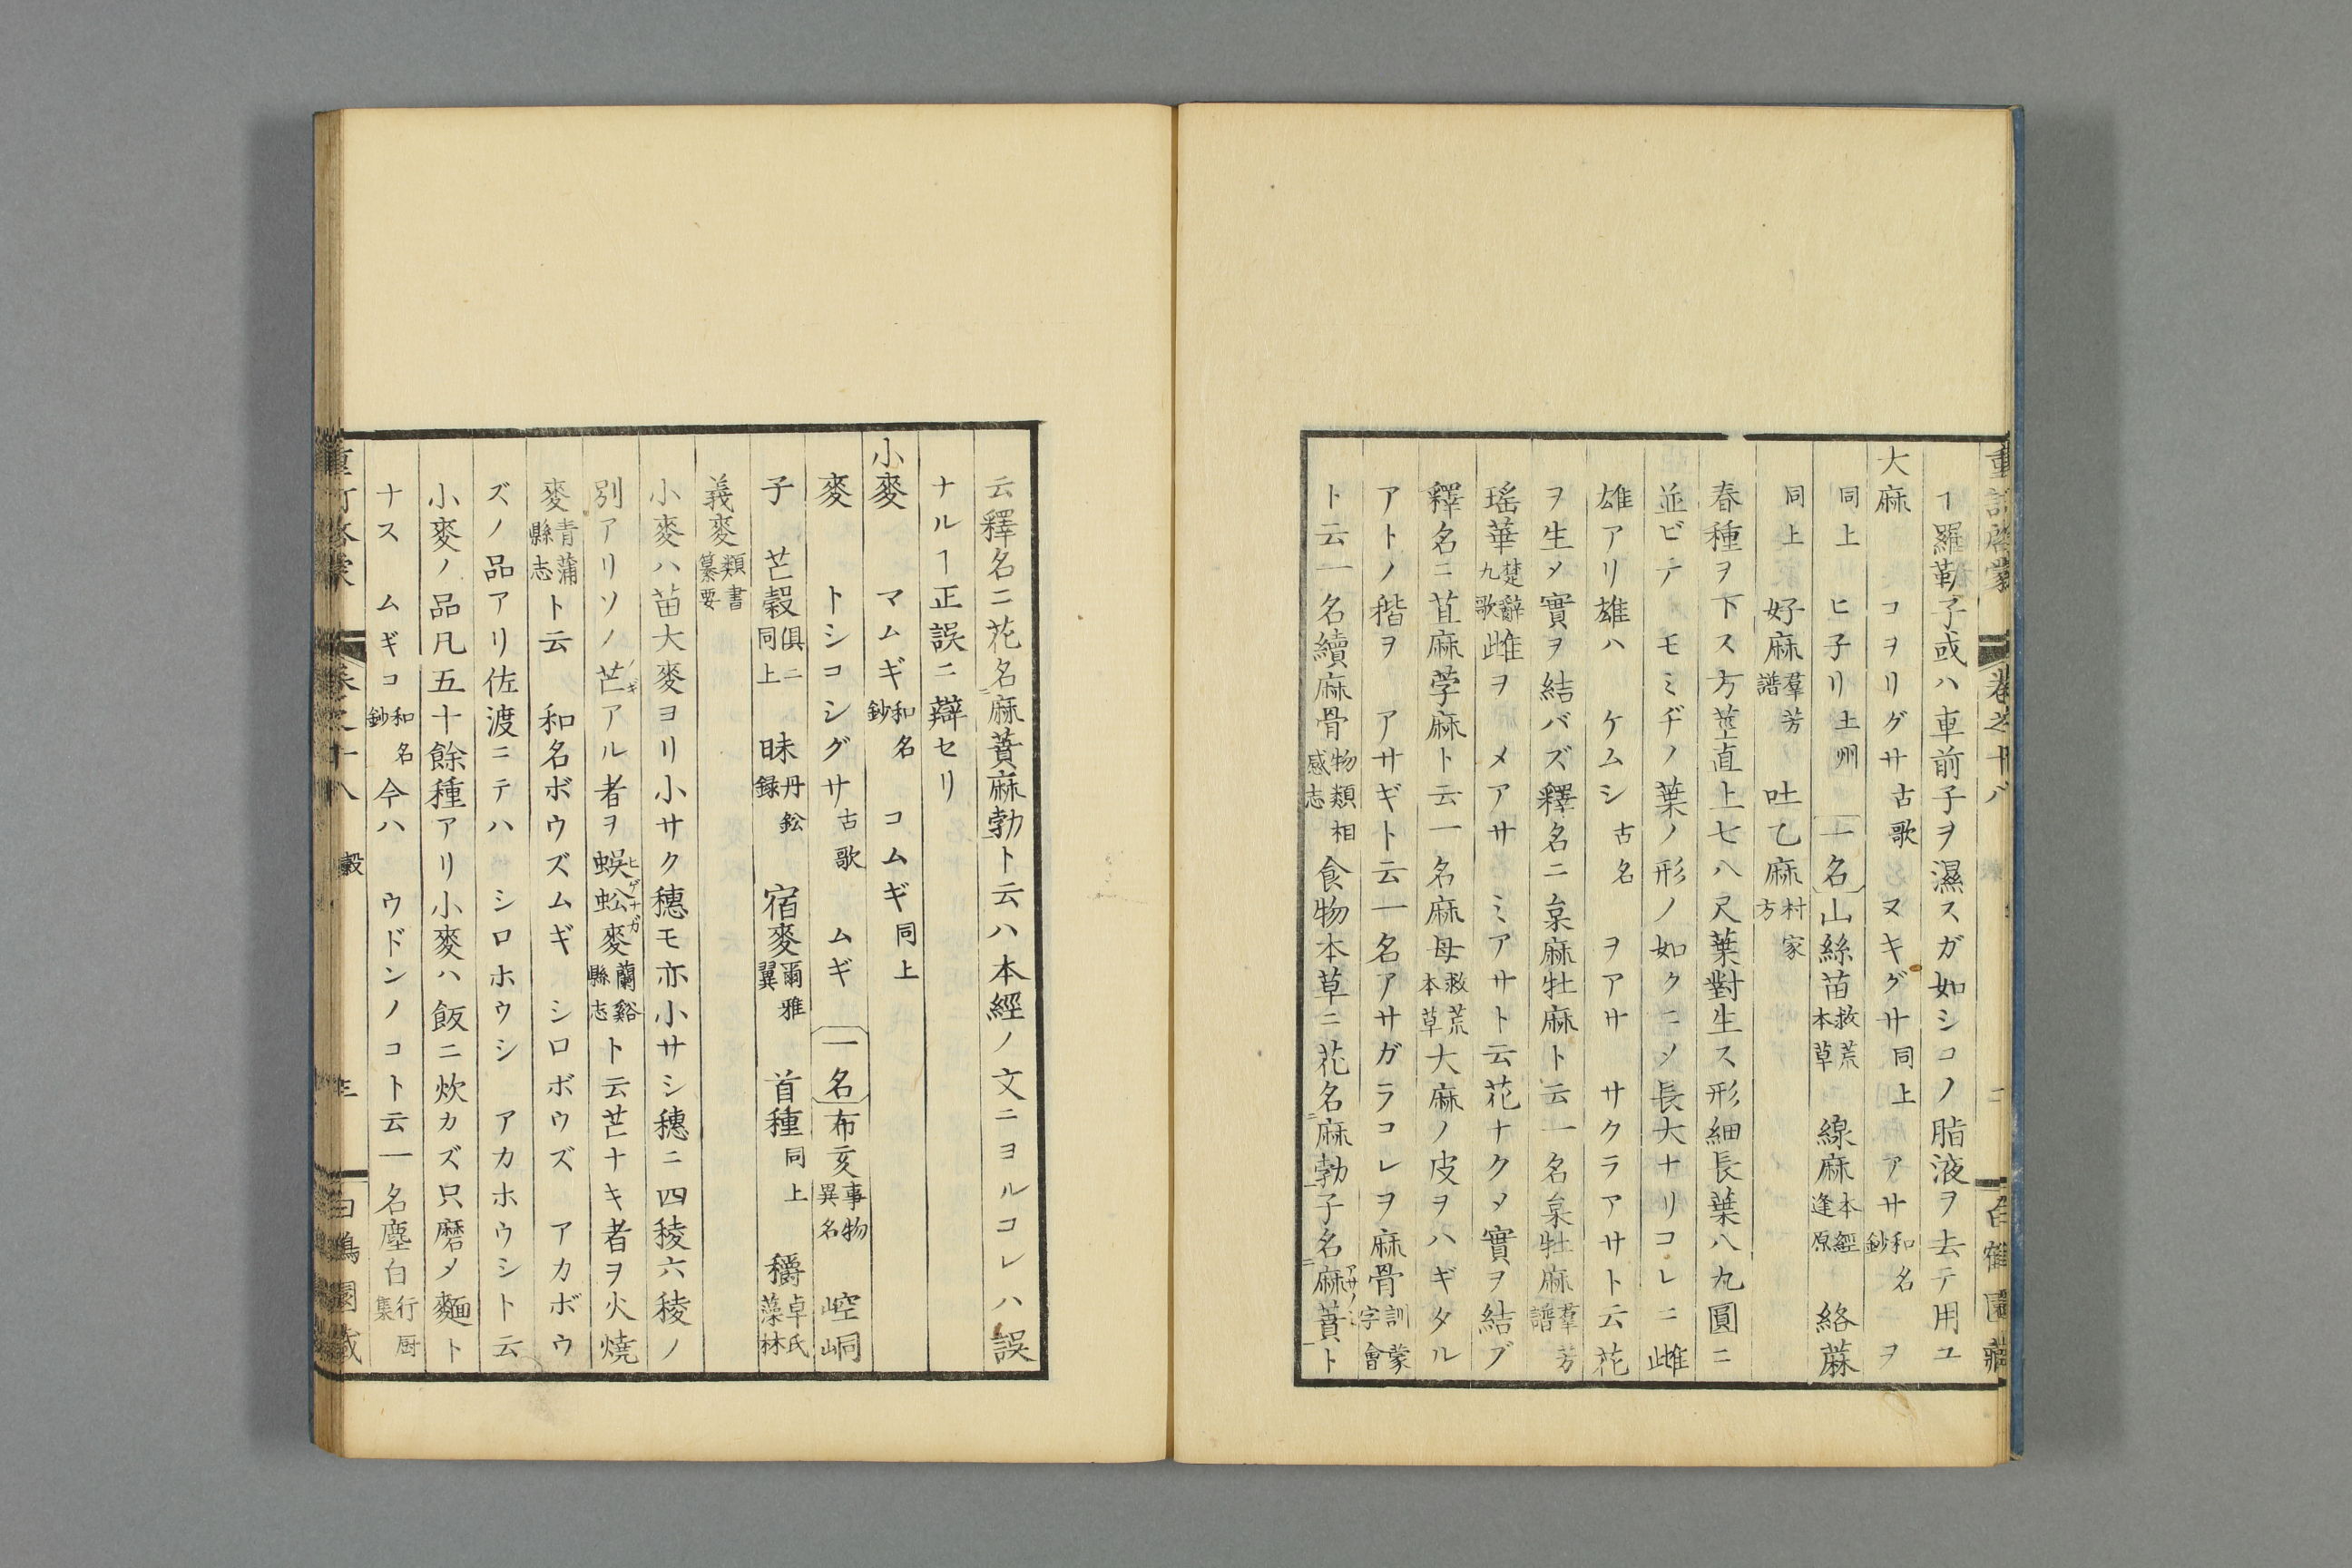 重訂啓蒙 卷之十八 二 白鶴園藏
ヿ羅勒子或ハ車前子ヲ濕スガ如シコノ脂液ヲ去テ用ユ
大麻 コヲリグサ古歌 ヌキグサ同上 アサ和名鈔 ヲ
同上 ヒ子リ土州 一名 山絲苗救荒本草 線麻本經逢原 絡蔴
同上 好麻羣芳譜 吐乙麻村家方
春種ヲ下ス方莖直上七八尺葉對生ス形細長葉八九圓ニ
並ビテ モミヂノ葉ノ形ノ如クニシ長大ナリコレニ雌
雄アリ雄ハ ケムシ古名 ヲアサ サクラアサト云花
ヲ生メ實ヲ結バズ釋名ニ枲麻牡麻ト云一名枲牡麻羣芳譜
瑤華楚辭九歌雌ヲ メアサ ミアサト云花ナクメ實ヲ結ブ
釋名ニ苴麻茡麻ト云一名麻母救荒本草大麻ノ皮ヲハギタル
アトノ稭ヲ アサギト云一名アサガラコレヲ麻骨訓蒙字會
ト云一名續麻骨物類相感志食物本草ニ花名麻勃子名麻蕡ト
云釋名ニ花名麻蕡麻勃ト云ハ本經ノ文ニヨルコレハ誤
ナルヿ正誤ニ辯セリ
小麥 マムギ和名鈔 コムギ同上
麥 トシコシグサ古歌 ムギ 一名 布亥事物異名 崆峒
子 芒穀俱ニ同上 䅘丹鉛録 宿麥爾雅翼 首種同上 穱卓氏藻林
義麥類書纂要
小麥ハ苗大麥ヨリ小サク穗モ亦小サシ穗ニ四稜六稜ノ
別アリソノ芒アル者ヲ蜈蚣麥蘭谿縣志ト云芒ナキ者ヲ火燒
麥青蒲縣志ト云 和名ボウズムギ シロボウズ アカボウ
ズノ品アリ佐渡ニテハ シロホウシ アカホウシト云
小麥ノ品凡五十餘種アリ小麥ハ飯ニ炊カズ只磨メ麵ト
ナス ムギコ和名鈔今ハ ウドンノコト云一名塵白行厨集
重訂啓蒙 卷之十八 穀 三 白鶴園藏